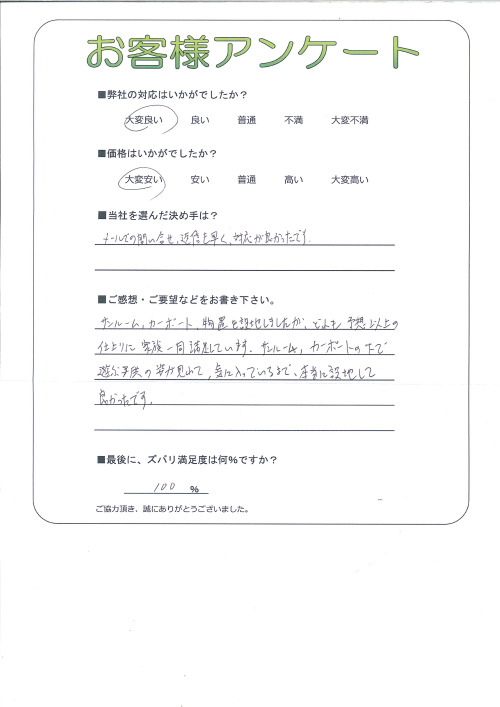 お客様アンケート
■弊社の対応はいかがでしたか？
大変良い 良い 普通 不満 大変不満
■価格はいかがでしたか？
大変安い 安い 普通 高い 大変高い
■当社を選んだ決め手は？
メールでの問い合せ、返信も早く、対応が良かったです。
■ご感想・ご要望などをお書き下さい。
サンルーム、カーポート、物置を設地しましたが、どれも予想以上の
仕上りに家族一同満足しています。サンルーム、カーポートの下で
遊ぶ子供の姿が見れて、気に入っているまで、本当に設地して
良かったです。
■最後に、ズバリ満足度は何％ですか？
100 %
ご協力頂き、誠にありがとうございました。